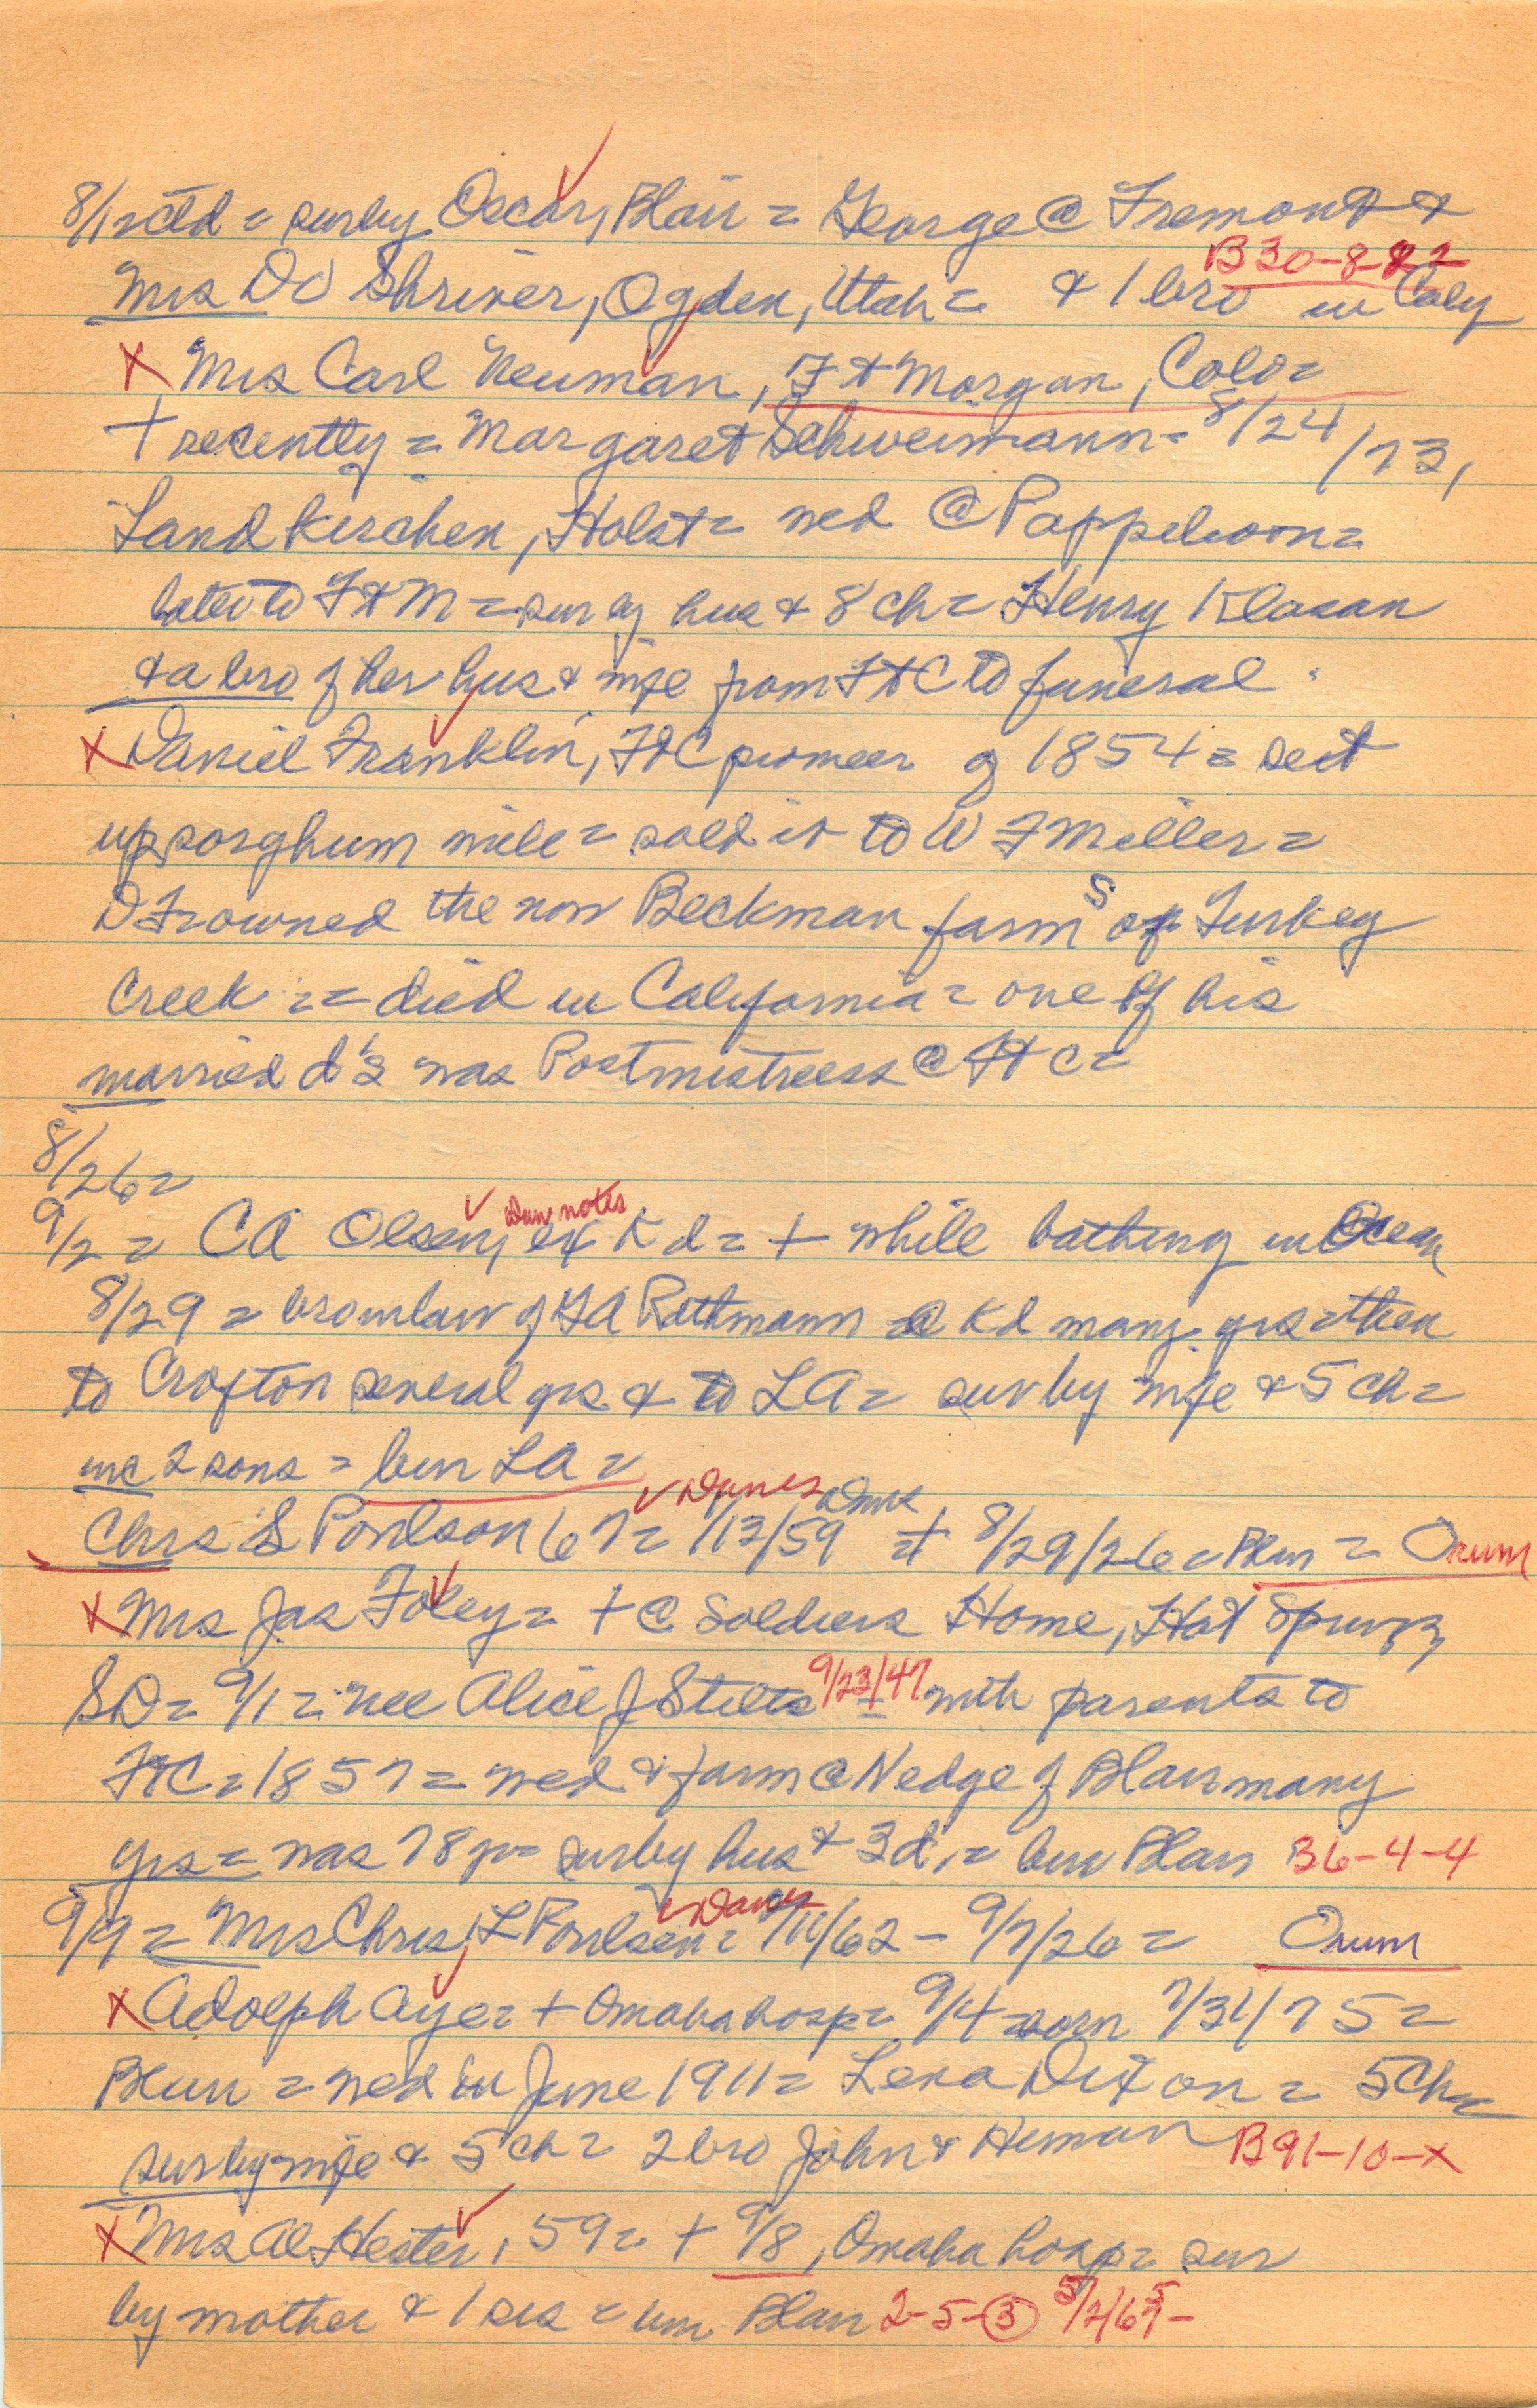 8/12 ctd = surby Oscar, Blair = George @ Fremont &
B30-8-22
Mrs DO Shriver, Ogden, Utah = & 1 bro in Caly
X Mrs Carl Neuman, Ft Morgan, Colo =
+ recently = Margaret Schweimann - 8/24/73,
Landkirchen, Holst = wed @ Pappelvon =
later to Ft M = sur by hus & 8 ch = Henry Klasan
& a bro of her hus & wife from Ft C to funeral
X Daniel Franklin, Ft C pioneer of 1854 = set
up sorghum mill = sold it to W F Miller =
D F owned the now Beckman farms on Turkey
Creek = = died in California = one of his
married d's was Postmistress @ Ft C =
8/26 =
Dan notes
9/2 = CA Olsen, ex Kd = + while bathing in Ocean
8/29 = broinlaw of FA Rathmann @ Kd many yrs = then
to Crofton several yrs & to LA = sur by wife & 5 ch =
inc 2 sons = bur LA =
Danes Dmk
Chris S Poulson 67 = 1/13/59 + 8/29/26 = Blair = Orum
X Mrs Jas Foley = + @ Soldiers Home, Hot Springs
SD = 9/1 = nee Alice J Stilts 9/23/47 = with parents to
Ft C = 1857 = wed & farm @ N edge of Blair many
yrs = was 78 yr = surby hus & 3 d, = bur Blair B6-4-4
Danes
9/9 = Mrs Chris L Poulsen = 9/11/62 - 9/7/26 = Orum
X Adolph Aye = + Omaha hosp = 9/4 = born 7/31/75 =
Blair = wed in June 1911 = Lena Dixon = 5 Ch =
surby wife & 5 ch = 2 bro John & Heman B91-10-X
X Mrs Al Hester, 59 = + 9/8, Omaha hosp = sur
by mother & 1 sis = bur Blair 2-5-③ 5/2/67-